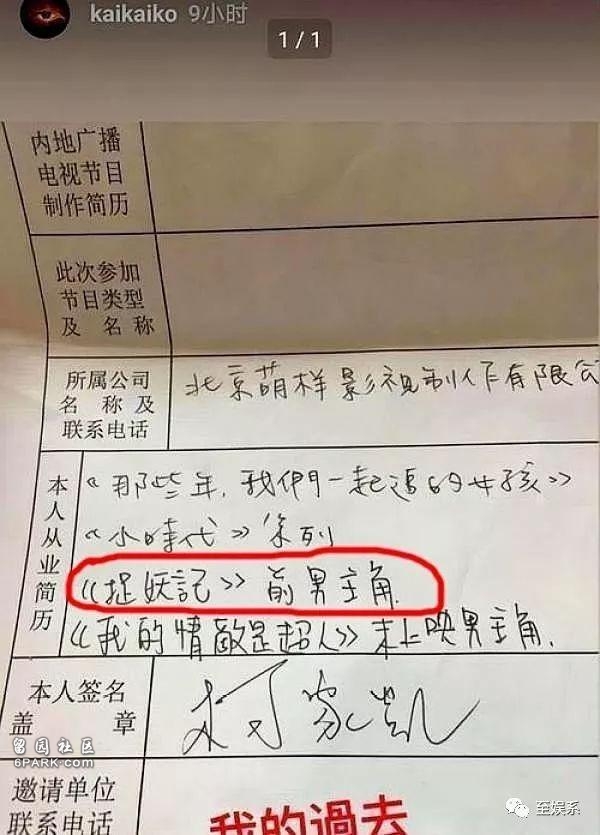 kaikaiko 9小时
1 / 1
内地广播
电视节目
制作简历
此次参加
节目类型
及名称
所属公司
名称及
联系电话
北京萌样影视制作有限公
本人从业简历
《那些年,我們一起追的女孩》
《小時代》系列
《捉妖記》前男主角.
《我的情敵是超人》未上映男主角.
本人签名
盖章
柯家凯
留园社区
6PARK.COM
邀请单位
联系电话
我的過去
至娱系